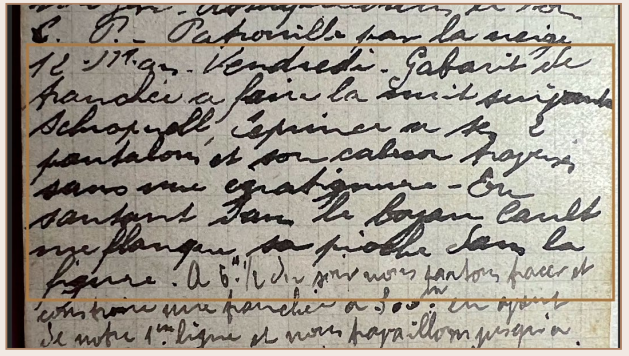 C. P. - Patrouille par la neige
12 - Vendredi - Gabarit de
tranchée a faire la nuit suivante
Schrapnell, Lépinier a ses 2
pantalons et son caleçon traversés
sans une egratignure - En
sautant dans le boyau Cault
me flanque sa pioche dans la
figure. A 6h 1/2 du soir nous partons tracer et
construire une tranchée a 300m en avant
de notre 1ère ligne et nous travaillons jusqu'a